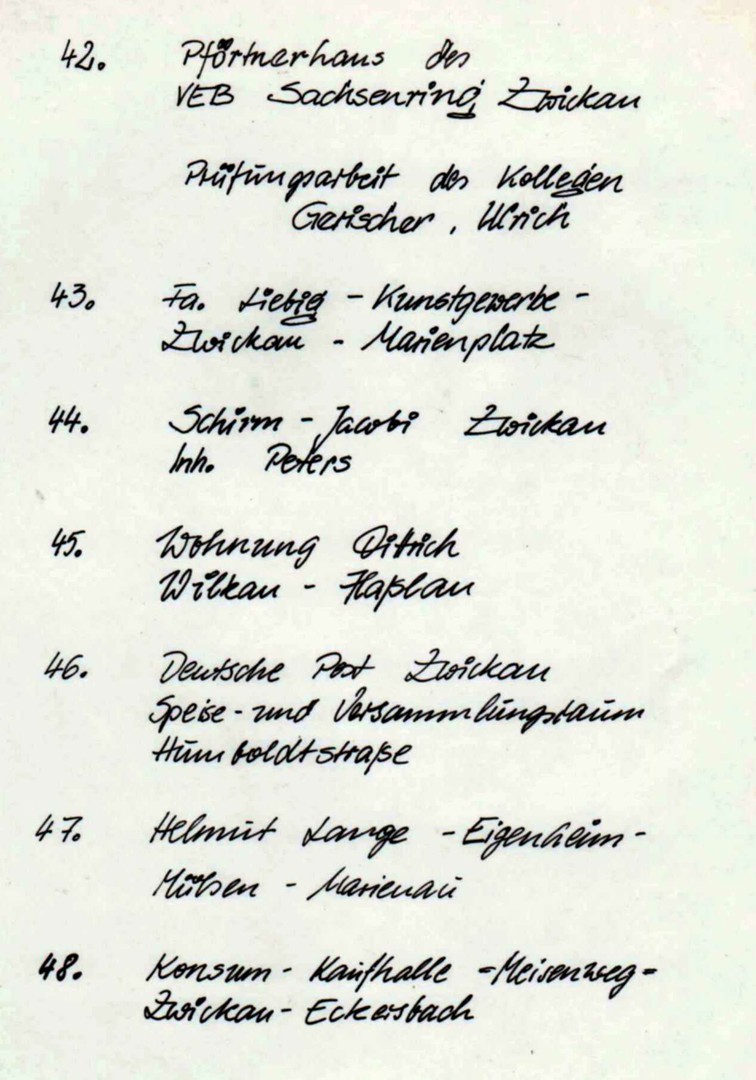 42. Pförtnerhaus des
VEB Sachsenring Zwickau
Prüfungsarbeit des Kollegen
Gerischer, Ulrich
43. Fa. Liebig - Kunstgewerbe -
Zwickau - Marienplatz
44. Schirm - Jacobi Zwickau
Inh. Peters
45. Wohnung Dittrich
Wilkau - Haßlau
46. Deutsche Post Zwickau
Speise- und Versammlungsraum
Humboldtstraße
47. Helmut Lange - Eigenheim -
Mülsen - Marienau
48. Konsum - Kaufhalle - Meisenweg -
Zwickau - Eckersbach